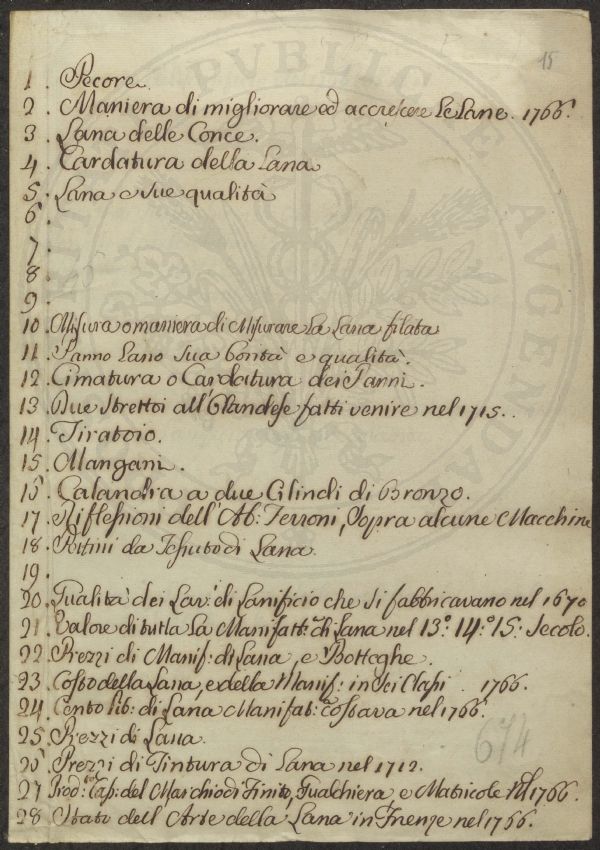 15
1. Pecore.
2. Maniera di migliorare ed accrescere Le Lane. 1766.
3. Lana delle Conce.
4. Cardatura della Lana
5. Lana e sue qualità
6.
7.
8.
9.
10. Misura o maniera di Misurare La Lana filata
11. Panno Lano sua bontà e qualità.
12. Cimatura o Cardatura dei Panni.
13. Due Strettoi all'Olandese fatti venire nel 1715.
14. Tiratoio.
15. Mangani.
15. Calandra a due Cilindi di Bronzo.
17. Riflessioni dell' Ab: Ferroni, Sopra alcune Macchine
18. Ritini da Tessuto di Lana.
19.
20. Qualità dei Lav: di Lanificio che si fabbricavano nel 1670
21. Valore di tutta La Manifatt: di Lana nel 13.º 14.º 15. Secolo.
22. Prezzi di Manif: di Lana, e Botteghe.
23. Costo della Lana, e della Manif: in sei Classi. 1766.
24. Cento lib: di Lana Manifat: Costava nel 1766.
25. Prezzi di Lana.
674
26. Prezzi di Tintura di Lana nel 1712.
27. Prod: Cap: del Marchio di Finito, Gualchiera e Matricole nel 1766.
28. Stato dell' Arte della Lana in Firenze nel 1766.
PUBLICAE
AUGENDA